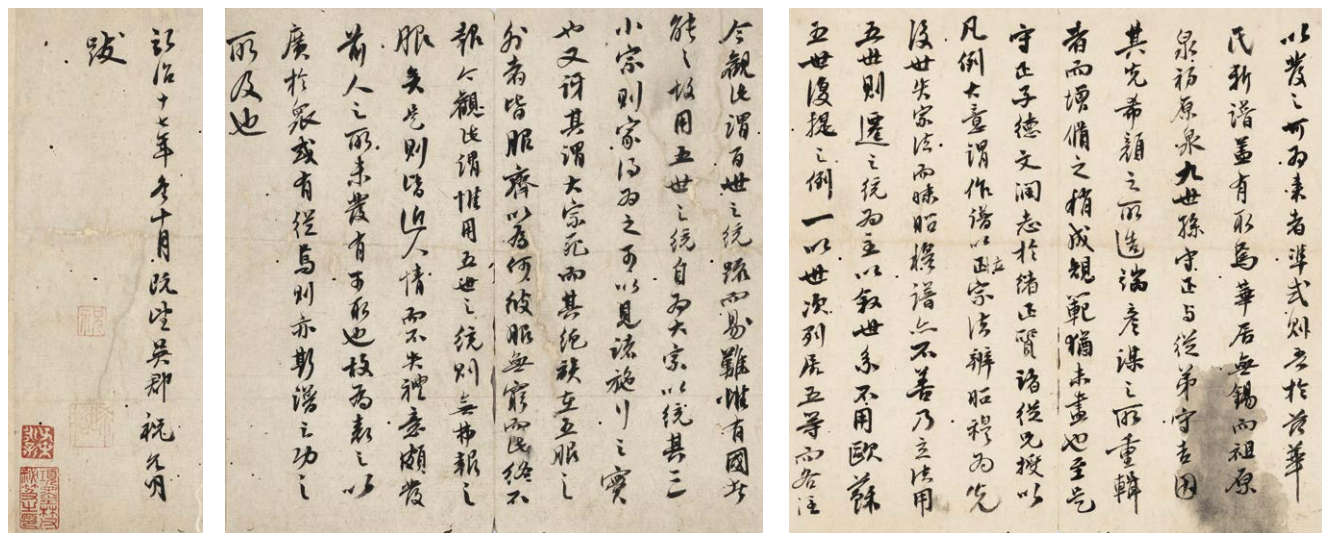 以發之可為来者準式則吾於茲華
氏新譜蓋有取焉華居無錫而祖原
泉初原泉九世孫守正与從弟守吉因
其先希顏之所造端彥謀之所重輯
者而增脩之稍成規範猶未盡也至是
守正子德文潤志於緒正質諸從兄授以
凡例大意謂作譜以正宗法辨昭穆為先
後世失宗法而昧昭穆譜亦不善乃立法用
五世則遷之統為主以敘世系不用歐蘇
五世復提之例一以世次列居五等而各注
今觀此謂百世之統疏而易難惟有國者
能之故用五世之統自為大宗以統其三
小宗則家得為之可以見諸施行之實
也又訝其謂大宗死而其絕族在五服之
外者皆服齊以為何彼服無窮而此終不
報今觀此謂惟用五世之統則無弗報之
服矣是則皆近人情而不失禮意頗發
前人之所未發有可取也故為表之以
廣於眾或有從焉則亦斯譜之功之
所及也
弘治十七年冬十月既望吳郡祝允明
跋